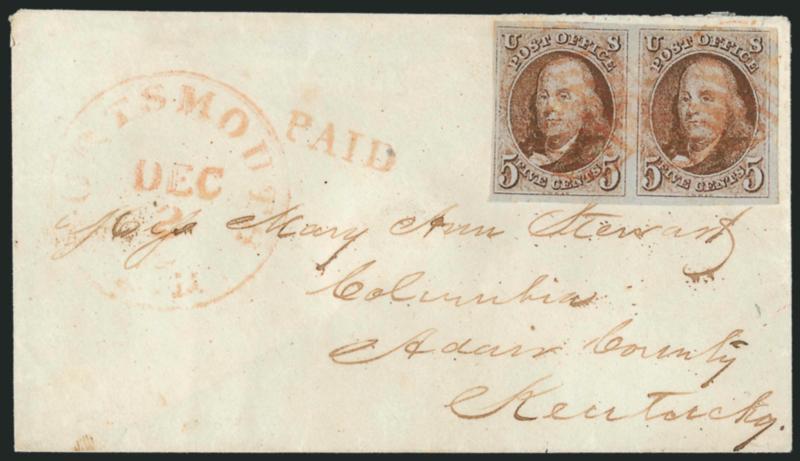 U S U S
POST OFFICE POST OFFICE
5 5 5 5
FIVE CENTS FIVE CENTS
PORTSMOUTH
DEC
2
PAID
Miss Mary Ann Stewart
Columbia
Adair County
Kentucky.